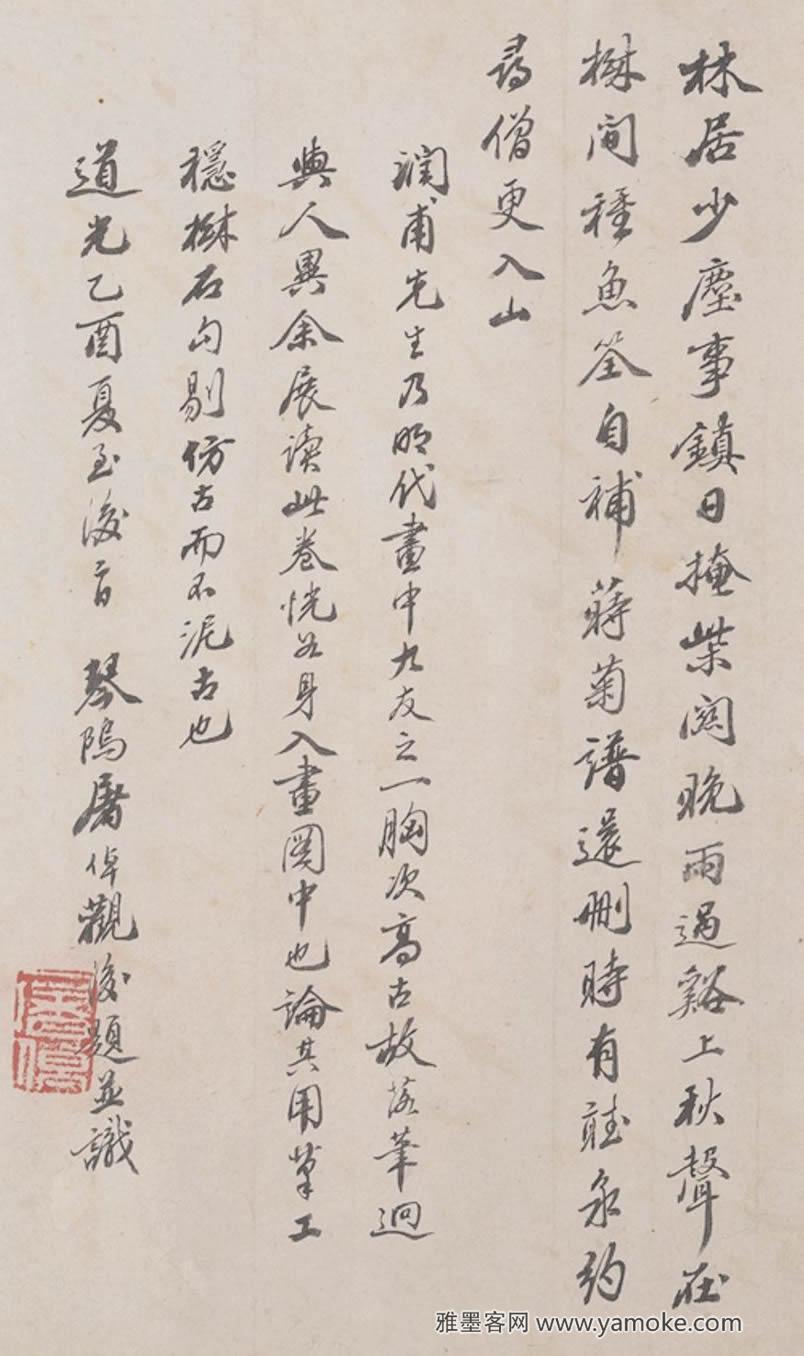 林居少塵事鎮日掩柴関晚雨過谿上秋聲在
樹間種魚筌自補蒔菊譜還刪時有聽泉約
尋僧更入山
潤甫先生乃明代畫中九友之一胸次高古故落筆迥
與人異余展讀此卷恍如身入畫圖中也論其用筆工
穩樹石勾剔仿古而不泥古也
道光乙酉夏至後二日 琴隖屠倬觀後題並識
屠倬
雅墨客网 www.yamoke.com